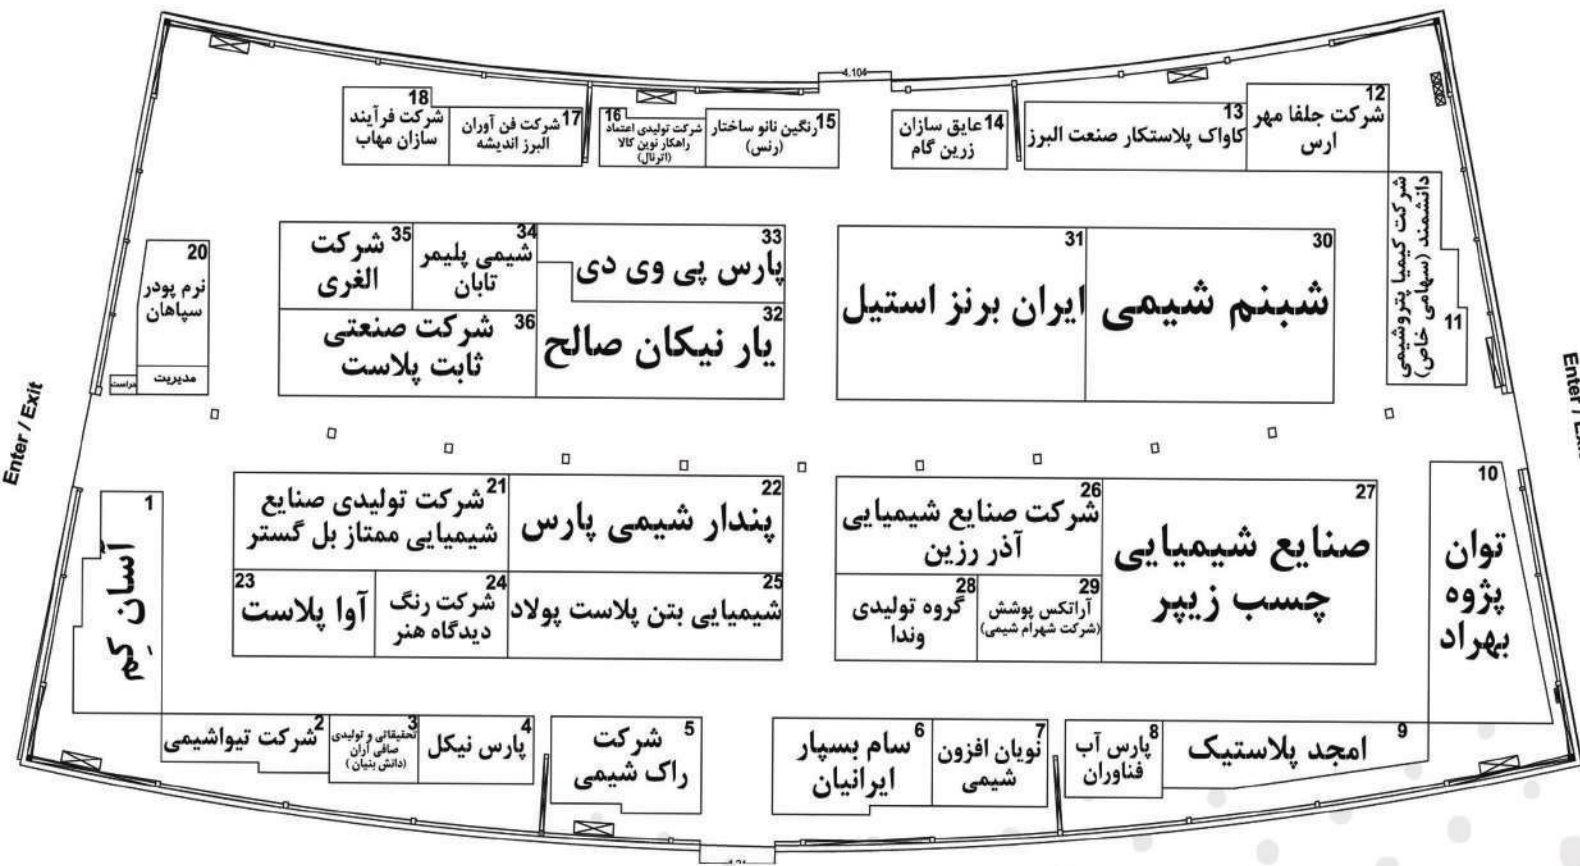 4.104
18
شرکت فرآیند
سازان مهاب
17
شرکت فن آوران
البرز اندیشه
16
شرکت تولیدی اعتماد
راهکار نوین کالا
(اترنال)
15
رنگین نانو ساختار
(رنس)
14
عایق سازان
زرین گام
13
کاواک پلاستکار صنعت البرز
12
شرکت جلفا مهر
ارس
11
شرکت کیمیا پتروشیمی
دانشمند (سهامی خاص)
20
نرم پودر
سپاهان
مدیریت
حراست
35
شرکت
الغری
34
شیمی پلیمر
تابان
33
پارس پی وی دی
36
شرکت صنعتی
ثابت پلاست
32
یار نیکان صالح
31
ایران برنز استیل
30
شبنم شیمی
Enter / Exit
Enter / Exit
1
آسان کِم
21
شرکت تولیدی صنایع
شیمیایی ممتاز بل گستر
22
پندار شیمی پارس
23
آوا پلاست
24
شرکت رنگ
دیدگاه هنر
25
شیمیایی بتن پلاست پولاد
26
شرکت صنایع شیمیایی
آذر رزین
28
گروه تولیدی
وندا
29
آراتکس پوشش
(شرکت شهرام شیمی)
27
صنایع شیمیایی
چسب زیپر
10
توان
پژوه
بهراد
2
شرکت تیواشیمی
3
تحقیقاتی و تولیدی
صافی آران
(دانش بنیان)
4
پارس نیکل
5
شرکت
راک شیمی
6
سام بسپار
ایرانیان
7
نویان افزون
شیمی
8
پارس آب
فناوران
9
امجد پلاستیک